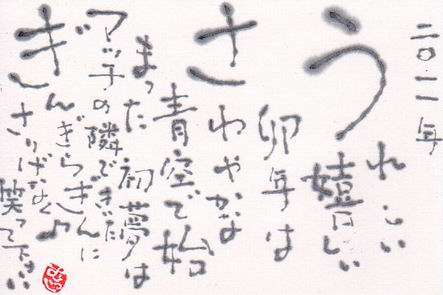 二〇一一年
うれしい
嬉しい
卯年は
さわやかな
青空で始
まった初夢は
マッチの隣で
ぎんぎらぎんに
さりげなく♪
笑って下さい